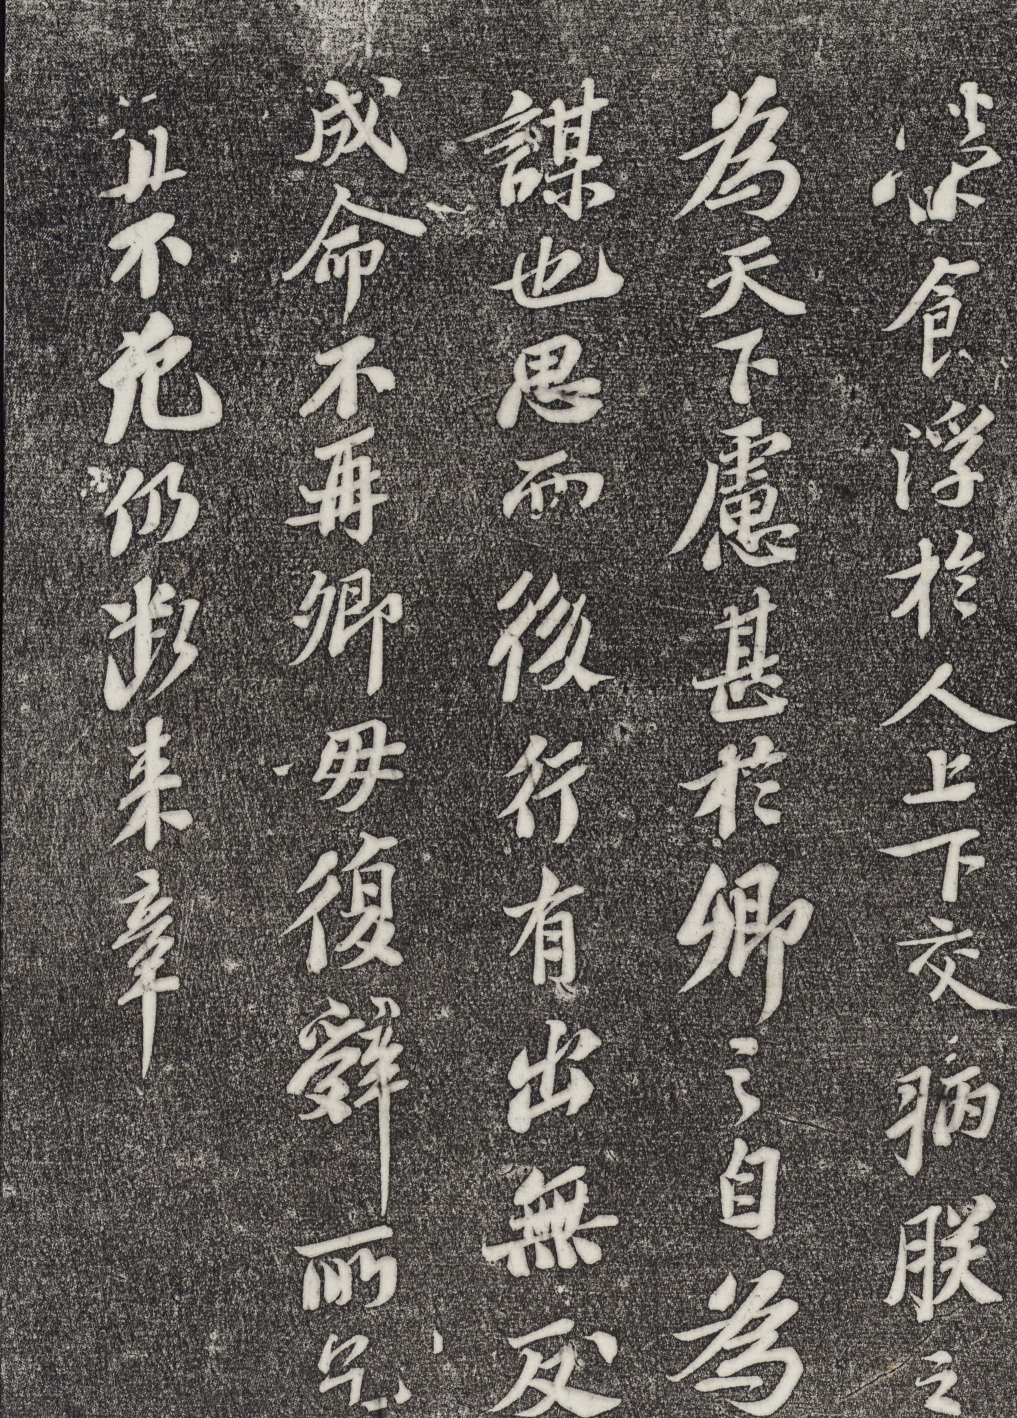 食浮於人上下交病朕之
為天下慮甚於卿之自為
謀也思而後行有出無反
成命不再卿毋復辭所乞
宜不允仍斷來章